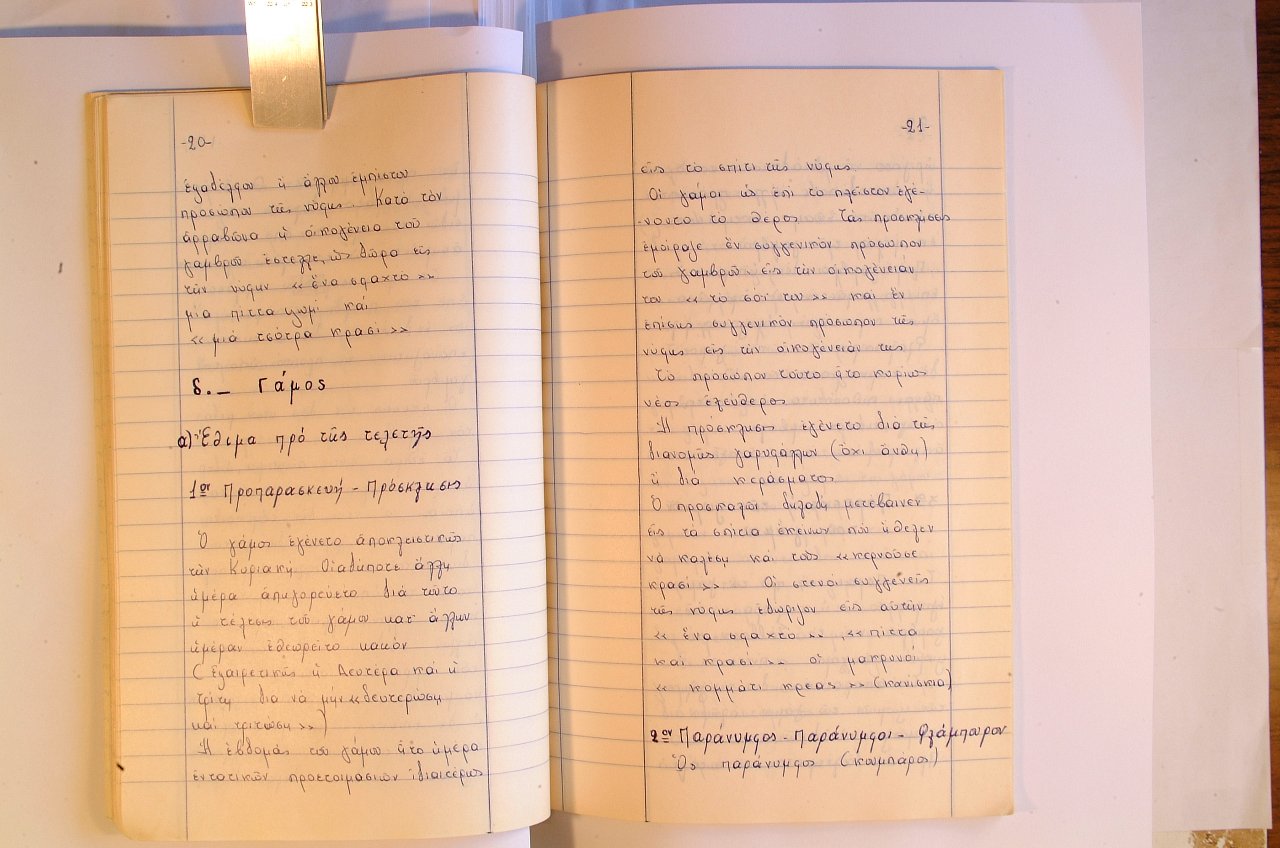 -20-
ἐξαδέλφου ἤ ἄλλου ἐμπίστου
προσώπου τῆς νύφης. Κατά τόν
ἀρραβῶνα ἡ οἰκογένεια τοῦ
γαμβροῦ ἔστελλε, ὡς δῶρα εἰς
τήν νύφην « ἕνα σφαχτό »
μιά πίττα ψωμί καί
« μιά τσότρα κρασί »
δ._ Γάμος
α) Ἔθιμα πρό τῆς τελετῆς
1ον Προπαρασκευή - Πρόσκλησις
Ὁ γάμος ἐγένετο ἀποκλειστικῶς
τήν Κυριακή. Οἱαδήποτε ἄλλη
ἡμέρα ἀπηγορεύετο διά τοῦτο
ἡ τέλεσις τοῦ γάμου κατ' ἄλλην
ἡμέραν ἐθεωρεῖτο κακόν
(Ἐξαιρετικῶς ἡ Δευτέρα καί ἡ
τρίτη διά νά μήν «δευτερώση
καί τριτώση »)
Ἡ ἑβδομάς τοῦ γάμου ἦτο ἡμέρα
ἐντατικῶν προετοιμασιῶν ἰδιαιτέρως
-21-
εἰς τό σπίτι τῆς νύφης
Οἱ γάμοι ὡς ἐπί τό πλεῖστον ἐγέ-
-νοντο τό θέρος. Τάς προσκλήσεις
ἐμοίραζε ἕν συγγενικόν πρόσωπον
τοῦ γαμβροῦ. εἰς τήν οἰκογένειάν
του « τό σόϊ του » καί ἕν
ἐπίσης συγγενικόν πρόσωπον τῆς
νύφης εἰς τήν οἰκογένειάν της
Τό πρόσωπον τοῦτο ἦτο κυρίως
νέος ἐλεύθερος
Ἡ πρόσκλησις ἐγένετο διά τῆς
διανομῆς γαρυφάλλων (ὄχι ἄνθη)
ἤ διά κεράσματος
Ὁ προσκαλῶν δηλαδή μετέβαινεν
εἰς τά σπίτια ἐκείνων πού ἤθελεν
νά καλέση καί τούς «κερνοῦσε
κρασί » Οἱ στενοί συγγενεῖς
τῆς νύφης ἐδώριζον εἰς αὐτήν
« ἕνα σφαχτό » , «πίττα
καί κρασί » οἱ μακρυνοί
« κομμάτι κρέας » (κανίσκια)
2ον Παράνυμφος - Παράνυμφοι - Φλάμπουρον
Ὡς παράνυμφος (κουμπάρος)